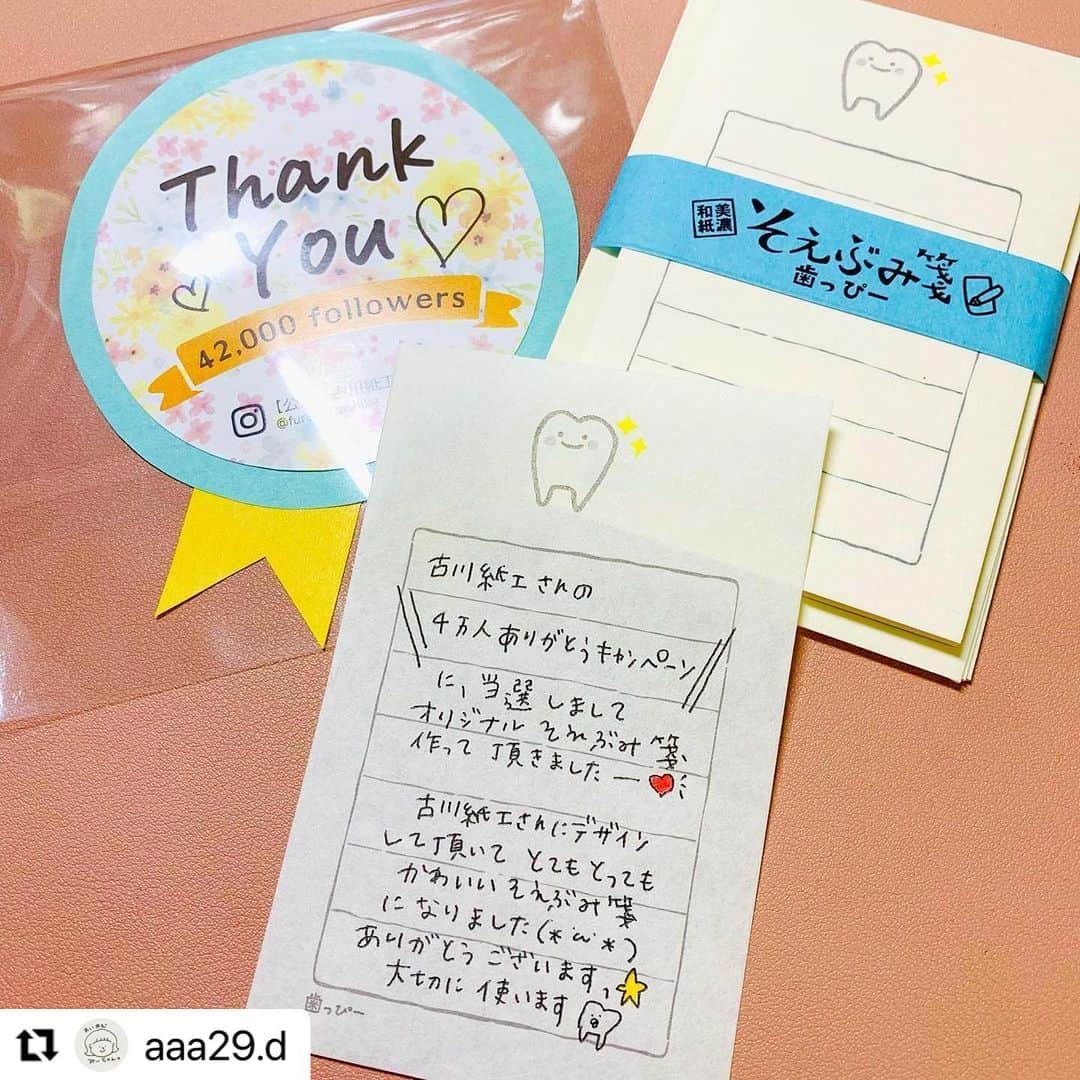 Thank
You
42,000 followers
和美
紙濃
そえぶみ箋
歯っぴー
古川紙工さんの
4万人ありがとうキャンペーン
に、当選しまして
オリジナル そえぶみ箋
作って頂きましたー
古川紙工さんにデザイン
して頂いて とてもとっても
かわいい そえぶみ箋
になりました(*´ω`*)
ありがとうございますっ
大切に使います
歯っぴー
aaa29.d